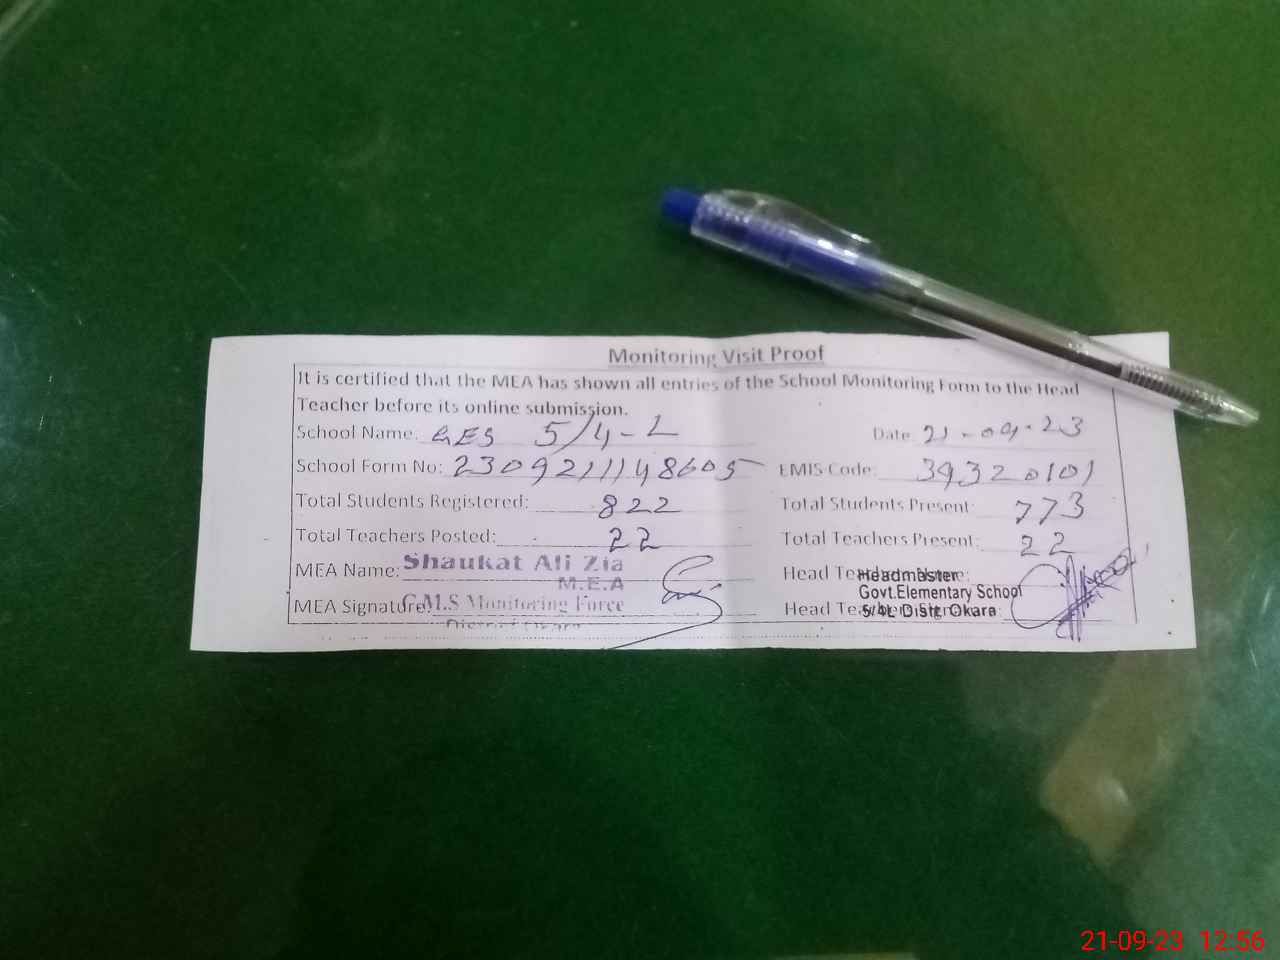 Monitoring Visit Proof
It is certified that the MEA has shown all entries of the School Monitoring Form to the Head
Teacher before its online submission.
School Name: GES 5/4-L Date 21-09-23
School Form No: 2309211148605 EMIS Code: 39320101
Total Students Registered: 822 Total Students Present: 773
Total Teachers Posted: 22 Total Teachers Present: 22
MEA Name: Shaukat Ali Zia Head Teacher Name:
M.E.A
MEA Signature: C.M.S Monitoring Force Head Teacher Signature:
District Okara
Headmaster
Govt.Elementary School
5/4L Distt. Okara
21-09-23 12:56